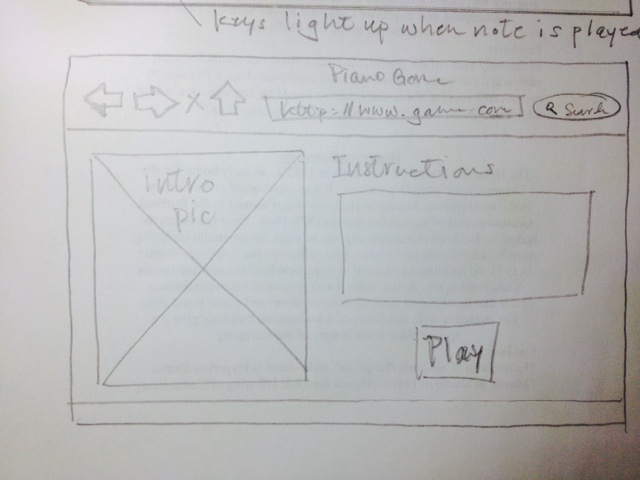 keys light up when note is played
Piano Game
X
http://www.game.com
Search
intro
pic
Instructions
Play